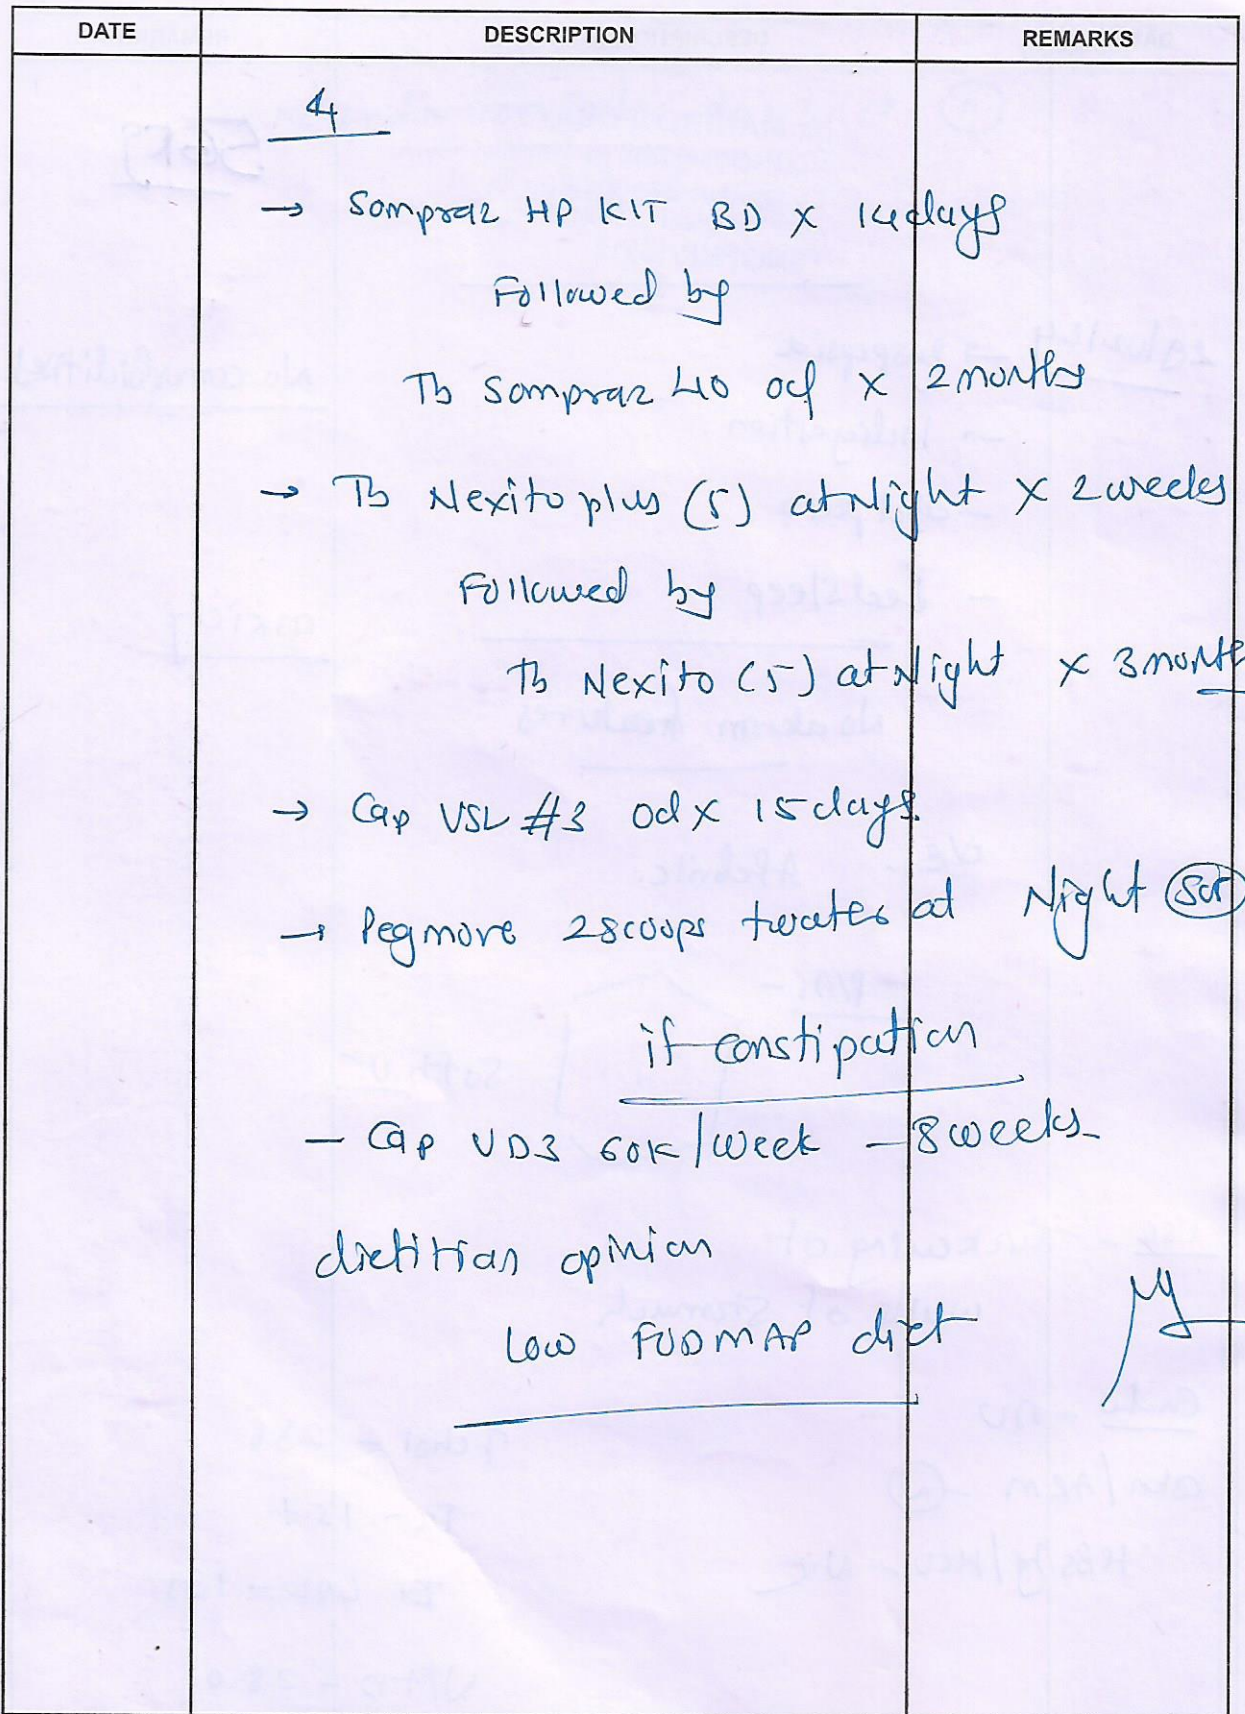 DATE DESCRIPTION REMARKS
4
→ Sompraz HP KIT BD x 14days
Followed by
Tb Sompraz 40 od x 2 months
→ Tb Nexito plus (5) at Night x 2 weeks
Followed by
Tb Nexito (5) at Night x 3 months
→ Cap VSL #3 od x 15 days
→ Pegmore 2 scoops water at Night
if constipation
- Cap VD3 60K/week - 8 weeks
dietitian opinion
low FODMAP diet